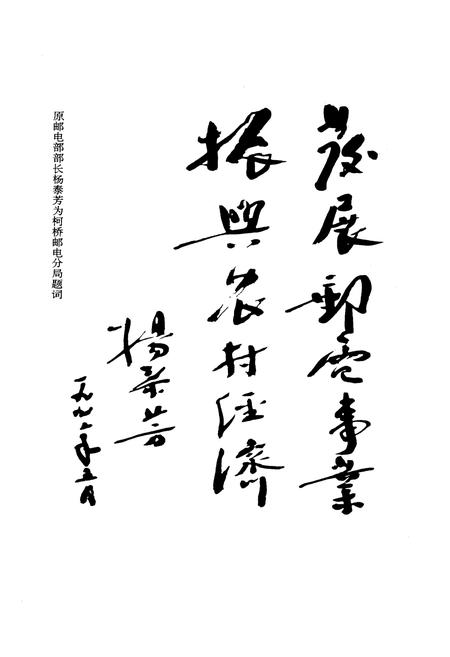 發展郵電事業
振興农村经濟
楊泰芳
一九九二年五月
原邮电部部长杨泰芳为柯桥邮电分局题词